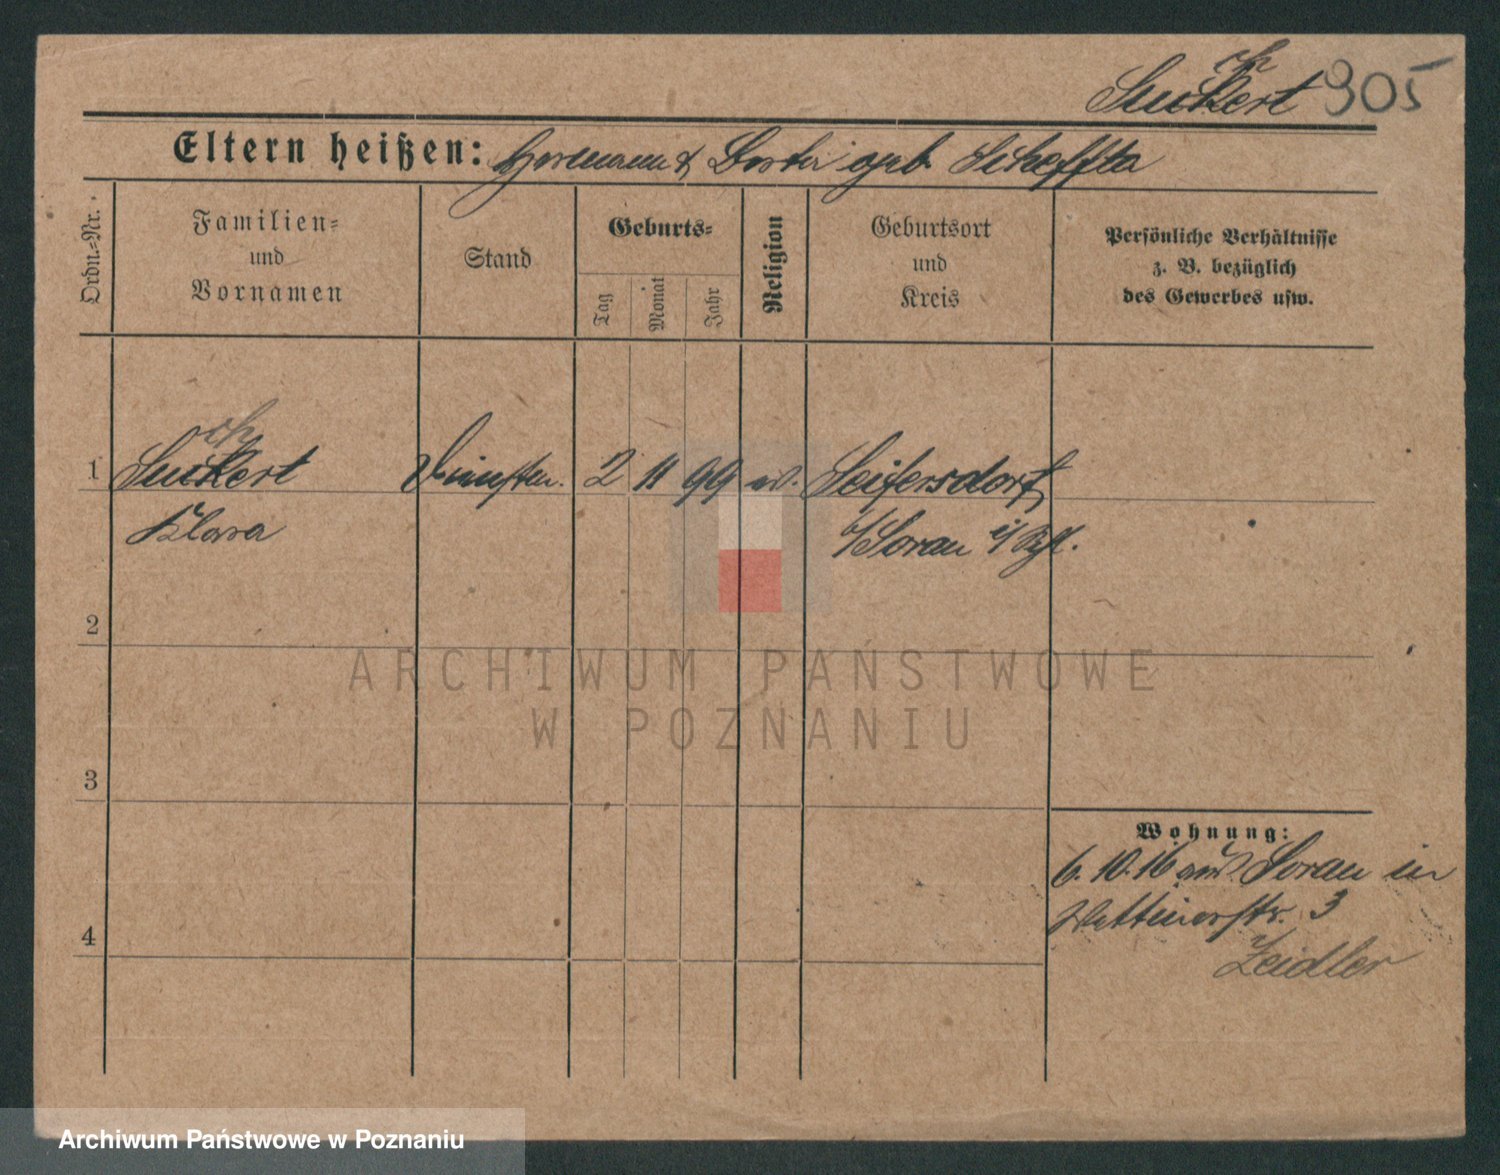 ch
Suckert 905
Eltern heißen: Hermann & geb.
Ordn.=Nr.
Familien=
und
Vornamen
Stand
Geburts=
Tag
Monat
Jahr
Religion
Geburtsort
und
Kreis
Persönliche Verhältnisse
z. B. bezüglich
des Gewerbes usw.
ch
1 Suckert 2 11 99 ev. Seifersdorf
Klara Sorau
2
3
4
Wohnung:
6.10.16 aus Sorau in
3
Zeidler
ARCHIWUM PAŃSTWOWE
W POZNANIU
Archiwum Państwowe w Poznaniu